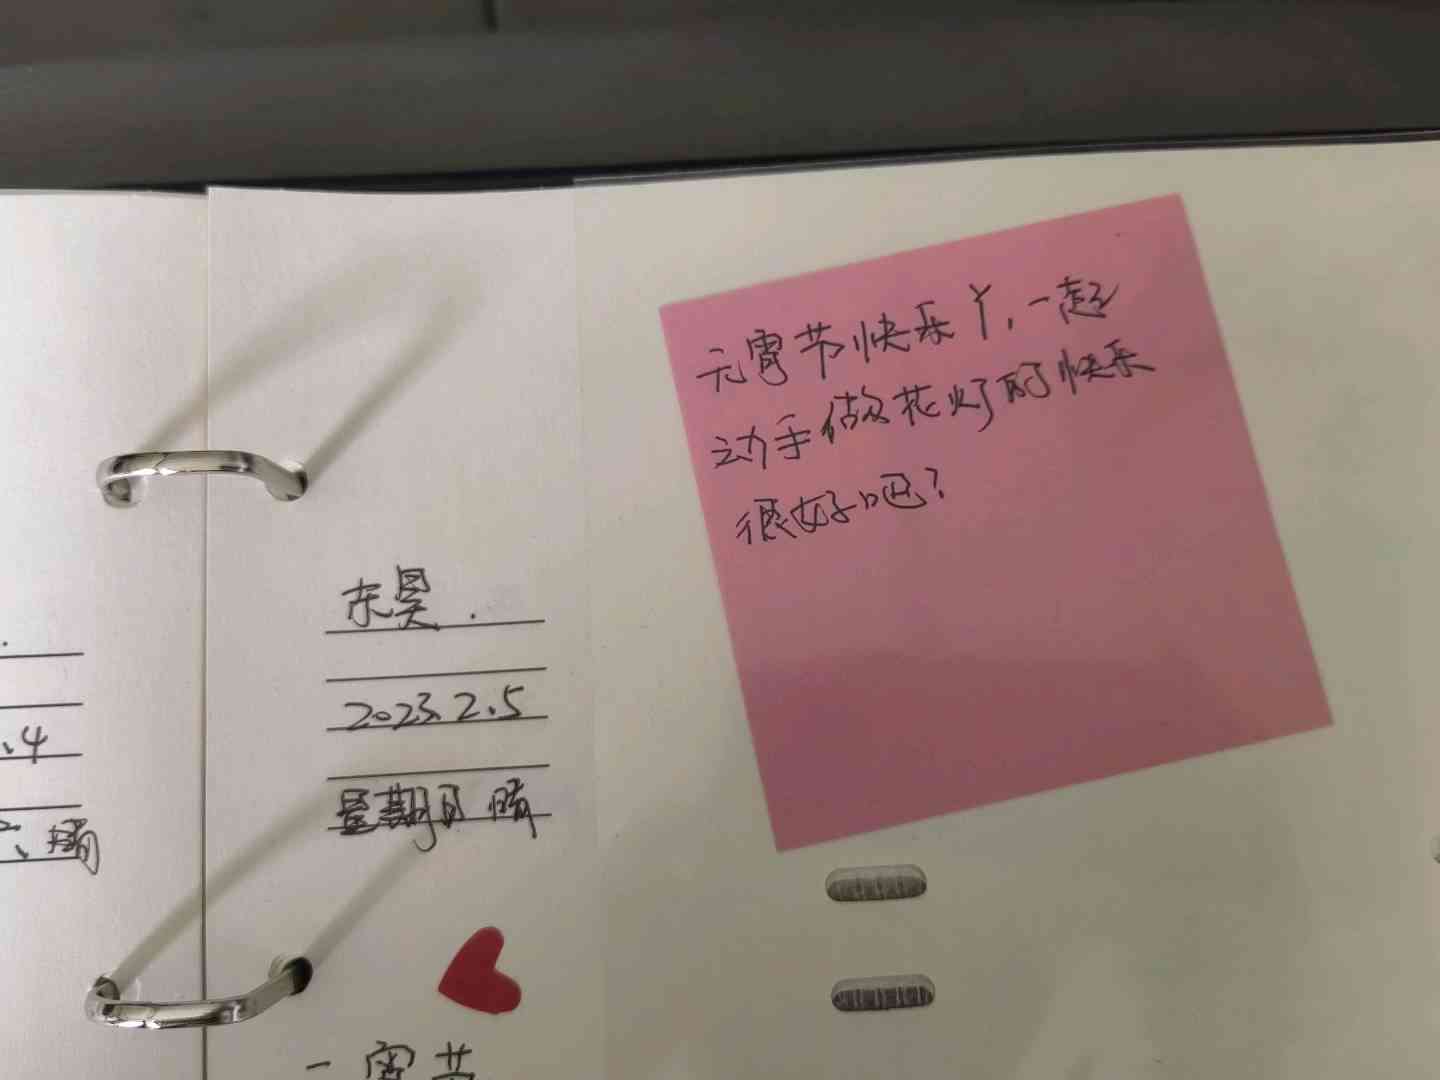 元宵节快乐丫,一起
动手做花灯的快乐
很好吧?
东昊.
2023.2.5
星期日 晴
.4
晴
宵节